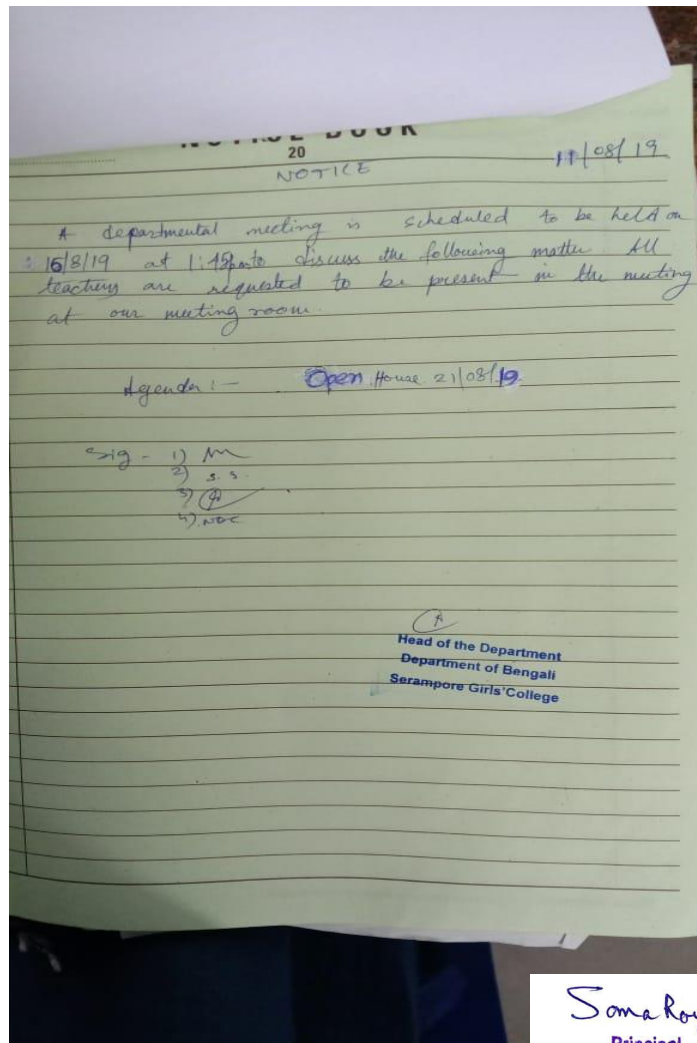 NOTICE BOOK
20
NOTICE
11/08/19
A departmental meeting is scheduled to be held on
16/8/19 at 1:45pm to discuss the following matter. All
teachers are requested to be present in the meeting
at our meeting room.
Agenda :- Open House 21/08/19
Sig - 1)
2) S. S.
3)
4) NDC
Head of the Department
Department of Bengali
Serampore Girls' College
Soma Roy
Principal